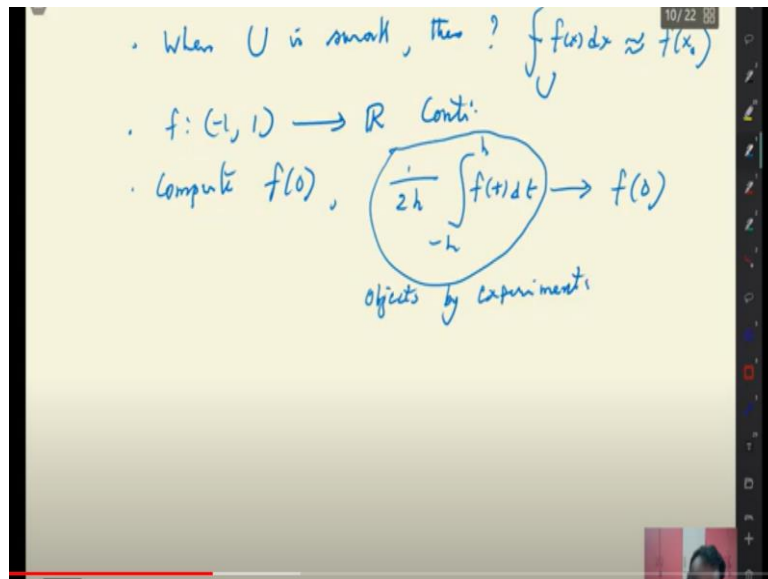 10/22
. When U is small, then ? ⨍_U f(x) dx ≈ f(x₀)
. f: (-1, 1) ⟶ ℝ Conti.
. Compute f(0), 1/2h ∫_{-h}^{h} f(t) dt ⟶ f(0)
objects by experiments